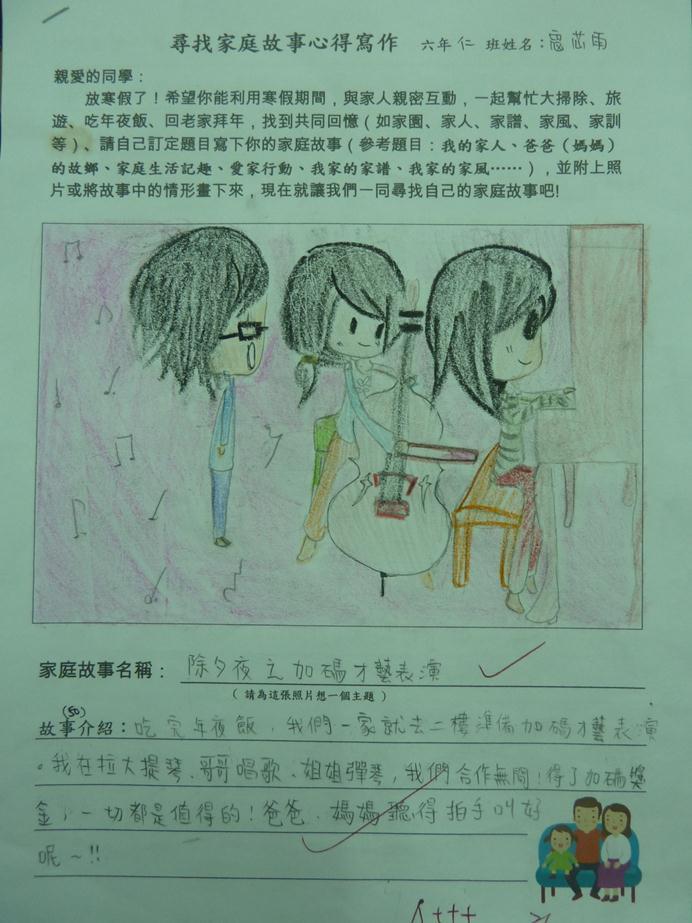 尋找家庭故事心得寫作 六年仁班姓名：寇芯雨
親愛的同學：
放寒假了！希望你能利用寒假期間，與家人親密互動，一起幫忙大掃除、旅
遊、吃年夜飯、回老家拜年，找到共同回憶（如家園、家人、家譜、家風、家訓
等）、請自己訂定題目寫下你的家庭故事（參考題目：我的家人、爸爸（媽媽）
的故鄉、家庭生活記趣、愛家行動、我家的家譜、我家的家風⋯⋯），並附上照
片或將故事中的情形畫下來，現在就讓我們一同尋找自己的家庭故事吧!
家庭故事名稱：除夕夜之加碼才藝表演
（請為這張照片想一個主題）
(50)
故事介紹：吃完年夜飯，我們一家就去二樓準備加碼才藝表演
。我在拉大提琴、哥哥唱歌、姐姐彈琴，我們合作無間！得了加碼獎
金，一切都是值得的！爸爸、媽媽聽得拍手叫好
呢～!!